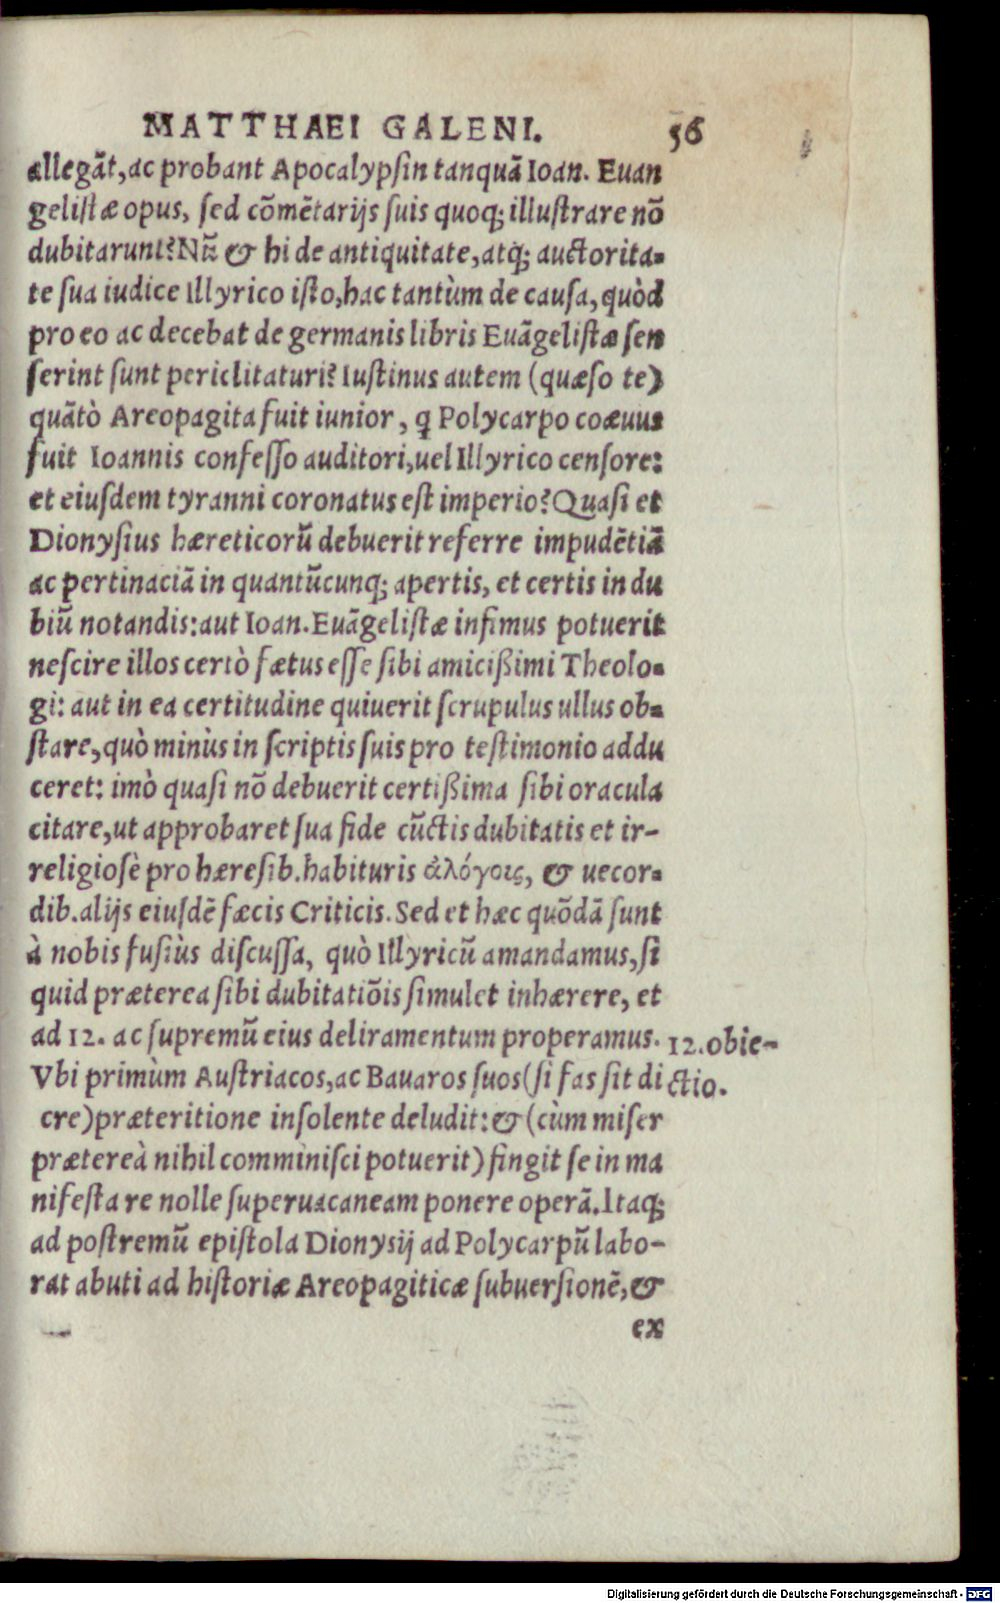 MATTHAEI GALENI. 56
allegāt, ac probant Apocalypſin tanquā Ioan. Euan
geliſtæ opus, ſed cōmētarijs ſuis quoq; illuſtrare nō
dubitarunt? & hi de antiquitate, atq; auctorita-
te ſua iudice Illyrico iſto, hac tantùm de cauſa, quòd
pro eo ac decebat de germanis libris Euāgeliſtæ ſen
ſerint ſunt periclitaturi? Iuſtinus autem (quæſo te)
quātò Areopagita fuit iunior, ꝗ Polycarpo coæuus
fuit Ioannis confeſſo auditori, uel Illyrico cenſore:
et eiuſdem tyranni coronatus eſt imperio? Quaſi et
Dionyſius hæreticorū debuerit referre impudētiā
ac pertinaciā in quantūcunq; apertis, et certis in du
biū notandis: aut Ioan. Euāgeliſtæ infimus potuerit
neſcire illos certò fætus eſſe ſibi amicißimi Theolo-
gi: aut in ea certitudine quiuerit ſcrupulus ullus ob-
ſtare, quò minùs in ſcriptis ſuis pro teſtimonio addu
ceret: imò quaſi nō debuerit certißima ſibi oracula
citare, ut approbaret ſua fide cūctis dubitatis et ir-
religioſè pro hæreſib. habituris ἀλόγοις, & uecor-
dib. alijs eiuſdē fæcis Criticis. Sed et hæc quōdā ſunt
à nobis fuſiùs diſcuſſa, quò Illyricū amandamus, ſi
quid præterea ſibi dubitatiōis ſimulet inhærere, et
ad 12. ac ſupremū eius deliramentum properamus.
12. obie-
ctio.
Vbi primùm Auſtriacos, ac Bauaros ſuos (ſi fas ſit di
cre) præteritione inſolente deludit: & (cùm miſer
prætereà nihil comminiſci potuerit) fingit ſe in ma
nifeſta re nolle ſuperuacaneam ponere operā. Itaq;
ad poſtremū epiſtola Dionyſij ad Polycarpū labo-
rat abuti ad hiſtoriæ Areopagiticæ ſubuerſionē, &
ex
Digitalisierung gefördert durch die Deutsche Forschungsgemeinschaft - DFG